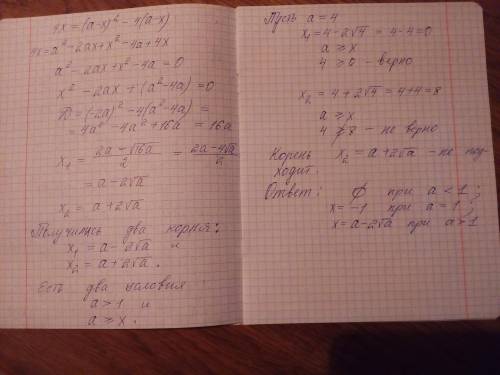 4x = (a-x)² - 4(a-x)
4x = a² - 2ax + x² - 4a + 4x
a² - 2ax + x² - 4a = 0
x² - 2ax + (a² - 4a) = 0
D = (-2a)² - 4(a² - 4a) =
= 4a² - 4a² + 16a = 16a
x₁ = (2a - √16a)/2 = (2a - 4√a)/2
= a - 2√a
x₂ = a + 2√a
Получились два корня:
x₁ = a - 2√a и
x₂ = a + 2√a.
Есть два условия
a > 1 и
a ≥ x.
Пусть a = 4
x₁ = 4 - 2√4 = 4 - 4 = 0
a ≥ x
4 ≥ 0 - верно
x₂ = 4 + 2√4 = 4 + 4 = 8
a ≥ x
4 ≱ 8 - не верно
Корень x₂ = a + 2√a - не под-
ходит.
Ответ: ∅ при a < 1;
x = -1 при a = 1;
x = a - 2√a при a > 1